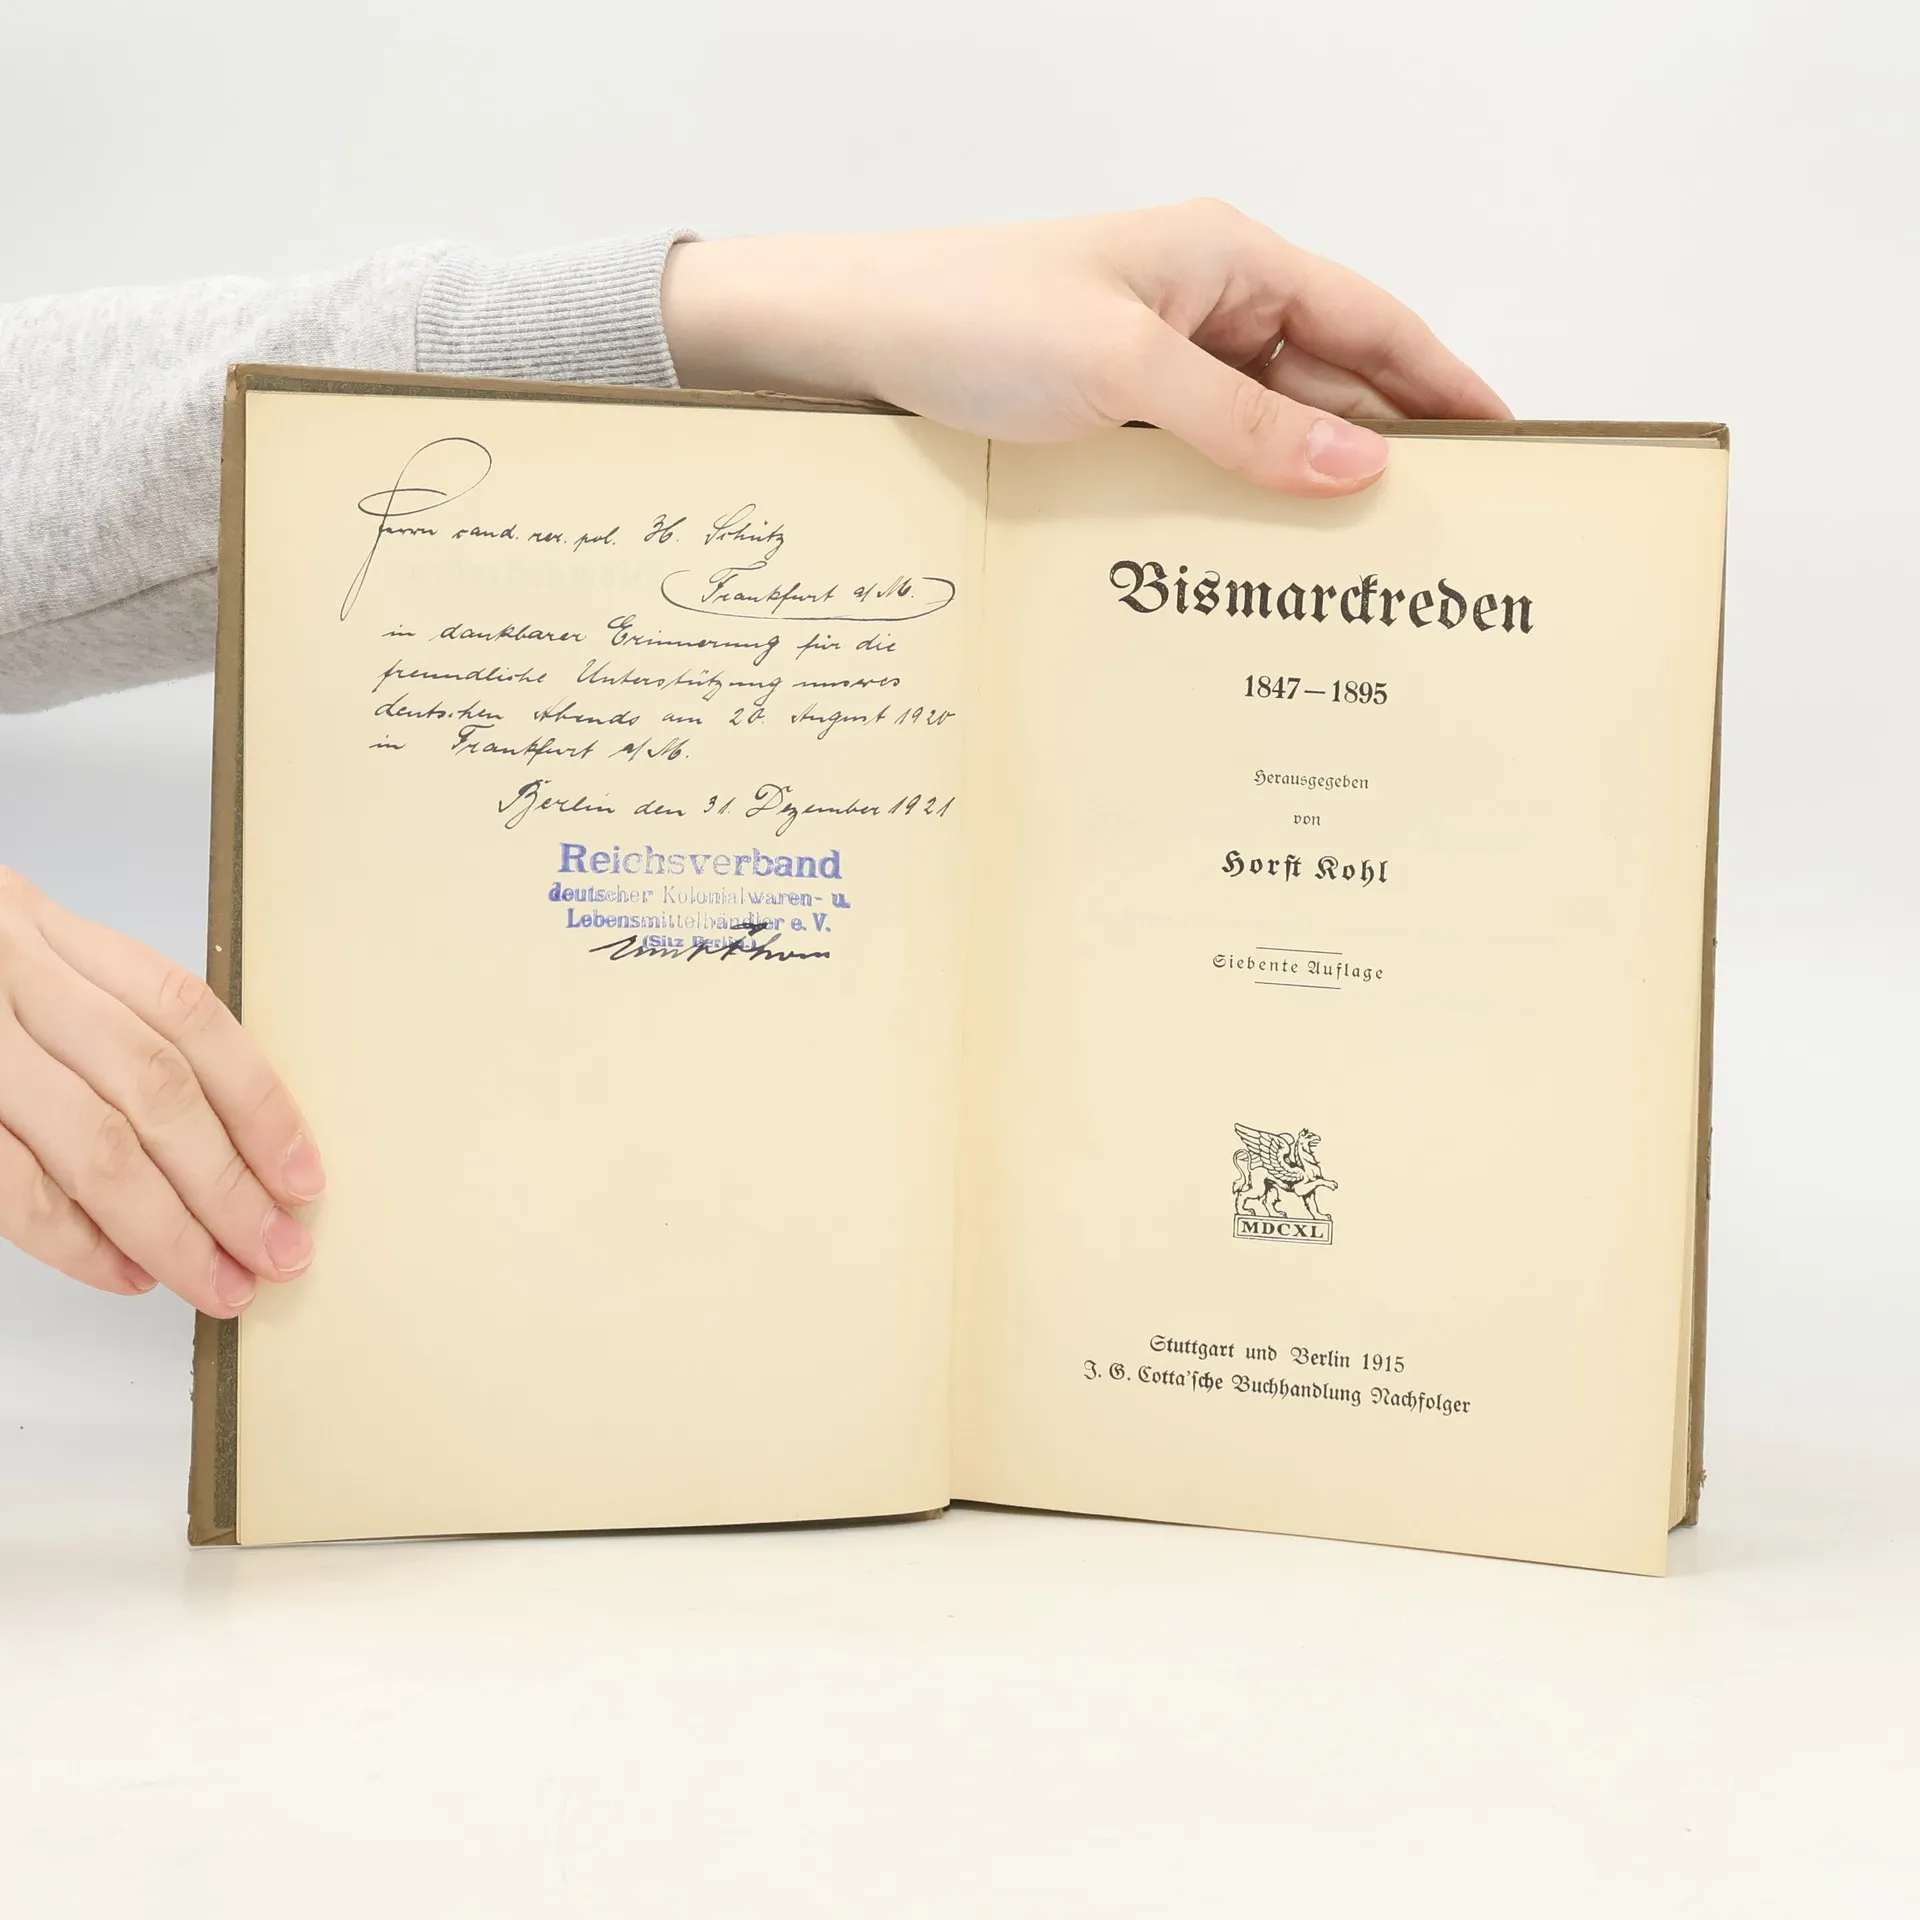 Herrn cand. rer. pol. H. Schütz
Frankfurt a/M.
in dankbarer Erinnerung für die
freundliche Unterstützung unseres
deutschen Abends am 20. August 1920
in Frankfurt a/M.
Berlin den 31. Dezember 1921
Reichsverband
deutscher Kolonialwaren- u.
Lebensmittelhändler e. V.
(Sitz Berlin.)
Bismarckreden
1847–1895
Herausgegeben
von
Horst Kohl
Siebente Auflage
MDCXL
Stuttgart und Berlin 1915
J. G. Cotta'sche Buchhandlung Nachfolger